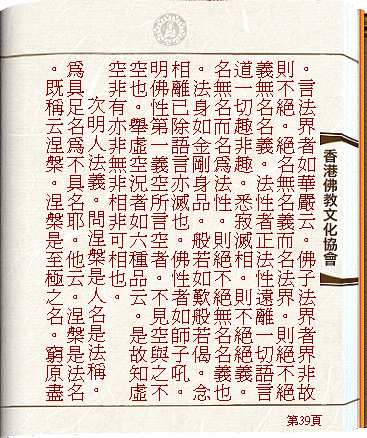 。言法界者如華嚴云。佛子法界者界非故
則不絕。絕名無名義而名法界。則不絕絕
義無名名義。法性者正法性遠離一切語言
道一切趣非趣。悉寂滅相。則不絕絕義。
名無名而名為法性。則絕不絕無名名義也
。法身如金剛身品。般若如歎般若偈。念
相離已除語言亦滅也。佛性者如師子吼。
明佛性第一義空所言空者。不見空與之不
空也。舉虛空況者如六種品云。是故知虛
空非有亦非無非相非可相也。
次明人法義。問涅槃是人名是法稱。
為具足名為不具名耶。他云。涅槃是法名
。既稱云涅槃。涅槃是至極之名。窮原盡
香港佛教文化協會
第39頁